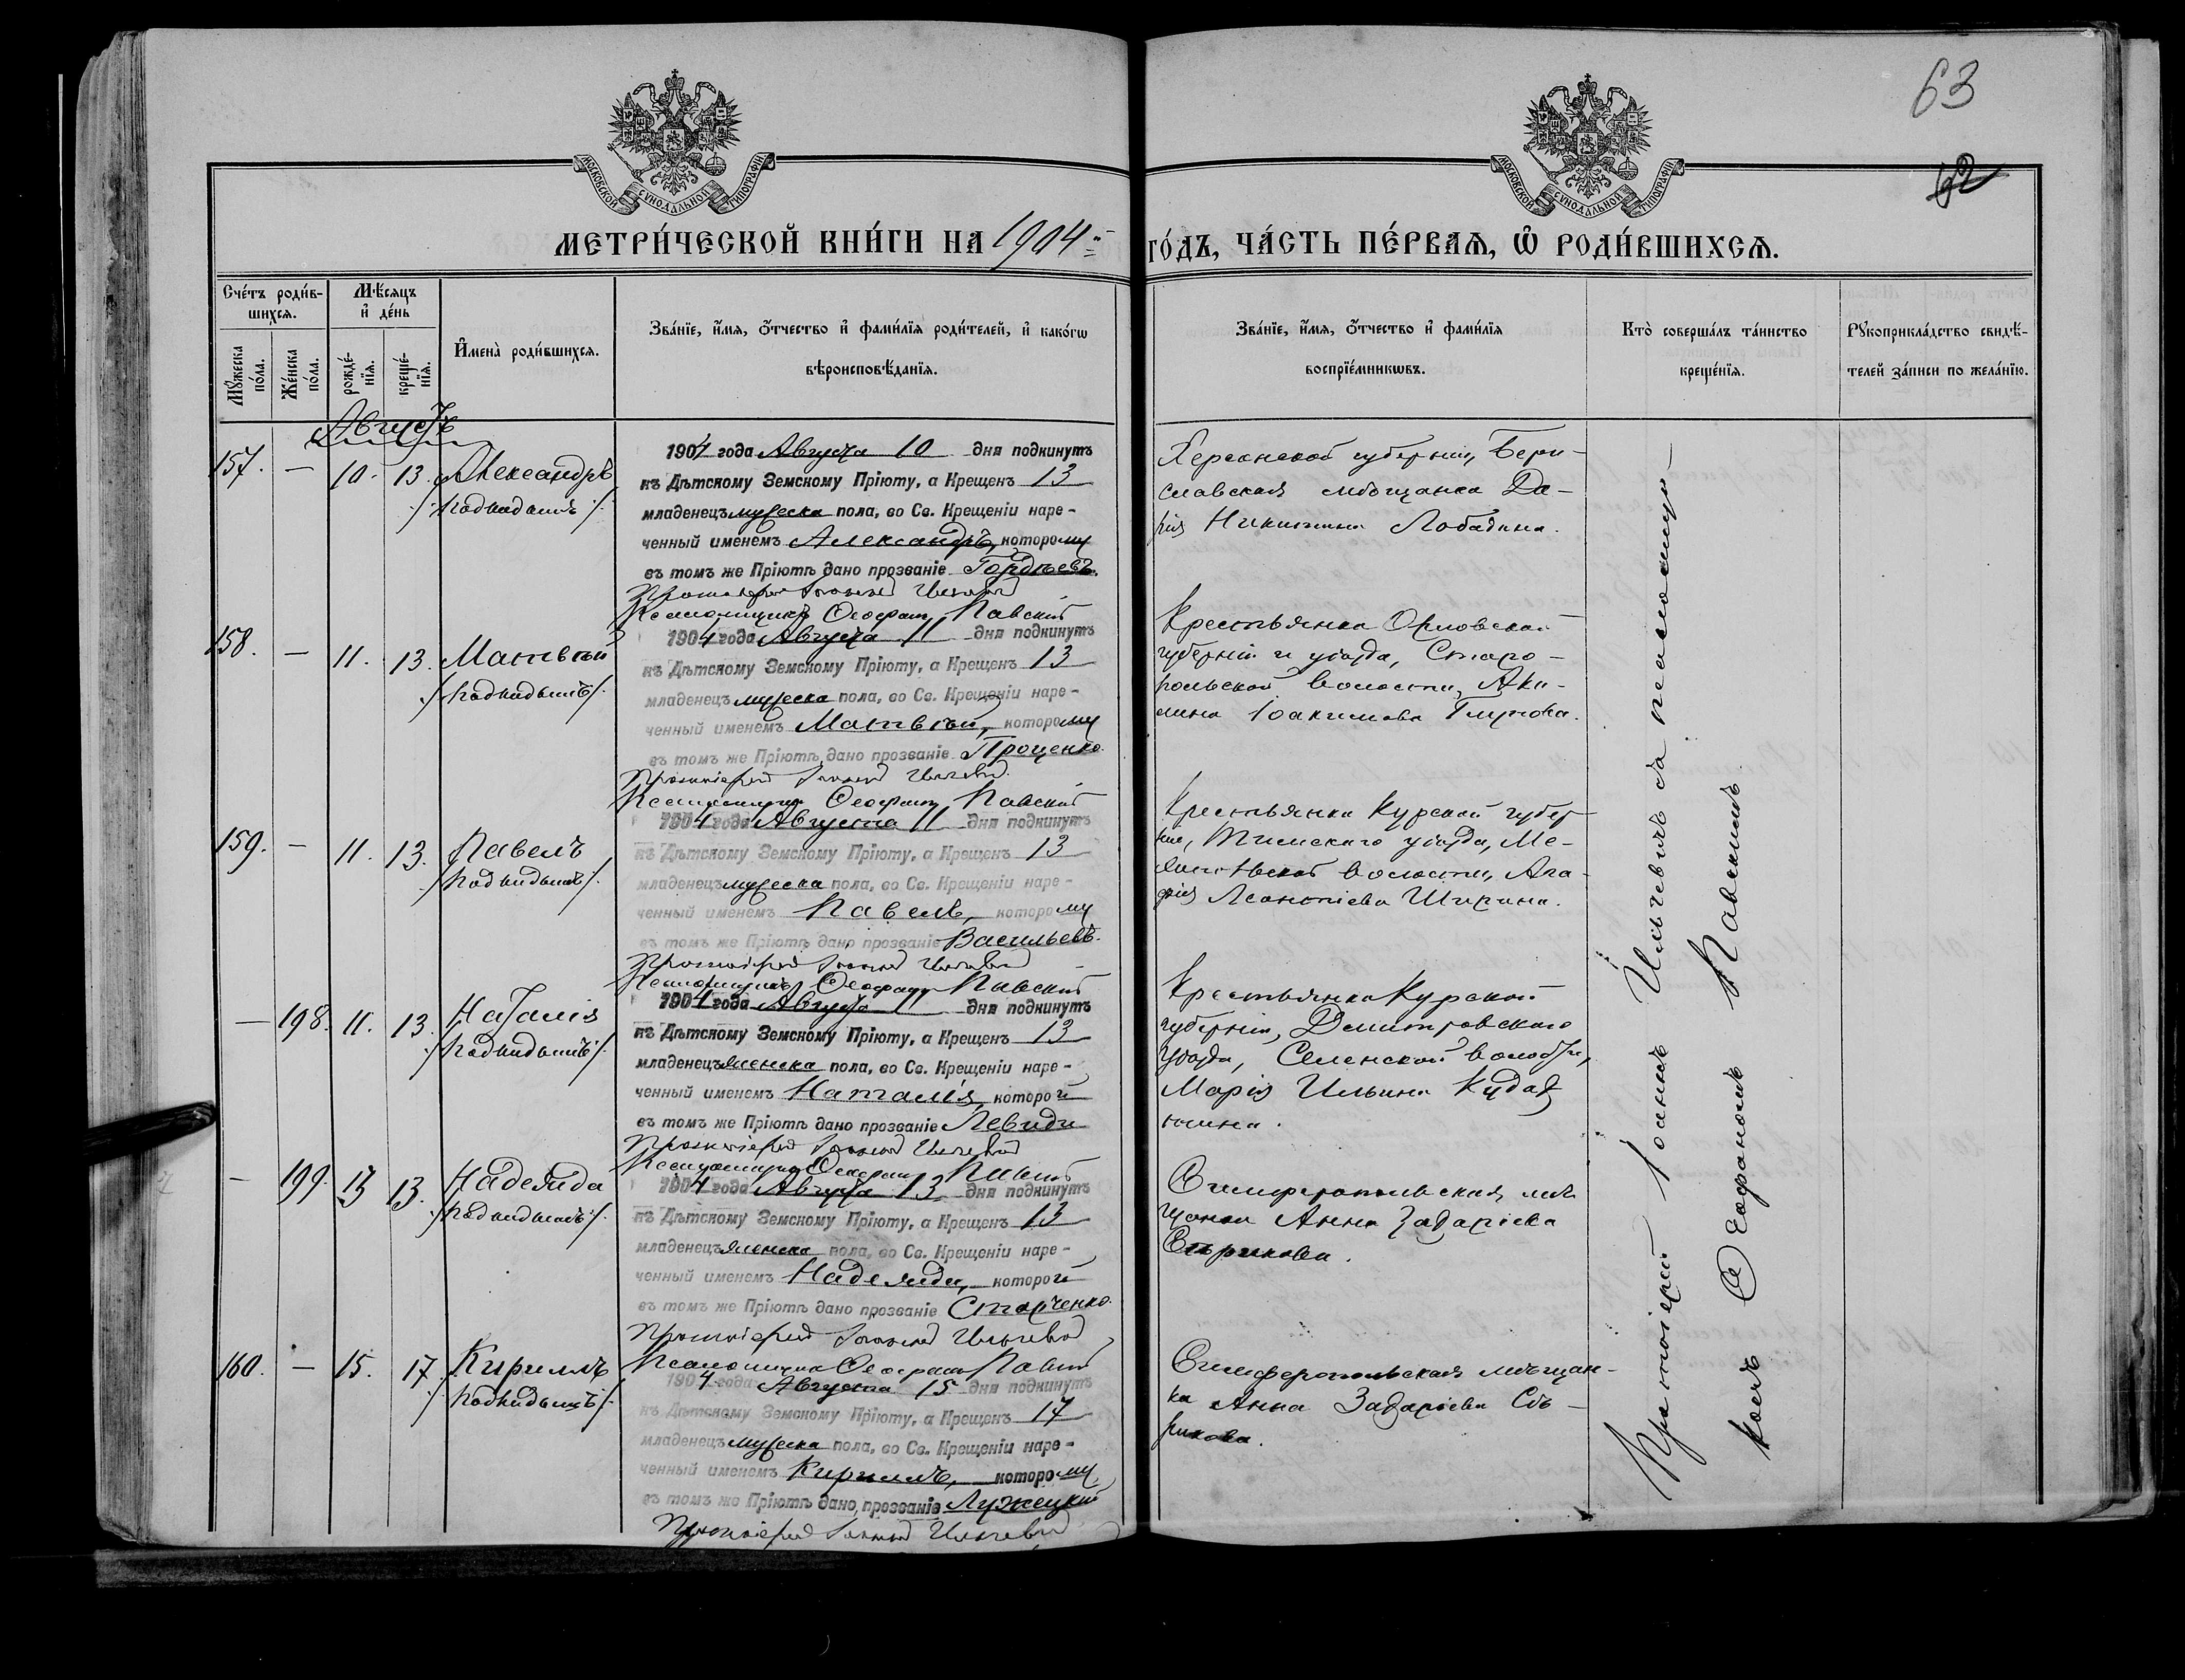 63
62
МОСКОВСКОЙ СѴНОДАЛЬНОЙ ТИПОГРАФІИ
МОСКОВСКОЙ СѴНОДАЛЬНОЙ ТИПОГРАФІИ
МЕТРИ́ЧЕСКОЙ КНИ́ГИ НА 1904 й
ГО́ДЪ, ЧА́СТЬ ПЕ́РВАѦ, Ѽ РОДИ́ВШИХСѦ.
Сче́тъ роди́в-
шихсѧ.
Мꙋжеска по́ла.
Же́нска по́ла.
Мѣ́сѧцъ и҆ де́нь
рожде́-нїѧ.
креще́-нїѧ.
И҆мена̀ роди́вшихсѧ.
Зва́нїе, и҆́мѧ, ѻ҆́тчество и҆ фами́лїѧ роди́телей, и҆ како́гѡ
вѣроисповѣ́данїѧ.
Зва́нїе, и҆́мѧ, ѻ҆́тчество и҆ фами́лїѧ
воспрїе́мникѡвъ.
Кто̀ соверша́лъ та́инство
креще́нїѧ.
Рꙋкоприкла́дство свидѣ́-
телей за́писи по жела́нїю.
Августъ
157. — 10. 13. Александръ
/подкидышъ/.
1904 года Августа 10 дня подкинутъ
къ Дѣтскому Земскому Пріюту, а Крещенъ 13
младенецъ мужеска пола, во Св. Крещеніи наре-
ченный именемъ Александръ, которому
въ томъ же Пріютѣ дано прозваніе Гордѣевъ.
Протоіерей Іоаннъ Ильчевич
Псаломщикъ Ѳеофанъ Павскій
Херсонской губерніи, Бери-
славская мѣщанка Да-
рія Никитина Лободина.
158. — 11. 13. Матвѣй
/подкидышъ/.
1904 года Августа 11 дня подкинутъ
къ Дѣтскому Земскому Пріюту, а Крещенъ 13
младенецъ мужеска пола, во Св. Крещеніи наре-
ченный именемъ Матвѣй, которому
въ томъ же Пріютѣ дано прозваніе Проценко.
Протоіерей Іоаннъ Ильчевич
Псаломщикъ Ѳеофанъ Павскій
Крестьянка Орловской
губерніи и уѣзда, Старо-
рольской волости, Аки-
лина Іоакимова Глухова.
159. — 11. 13. Павелъ
/подкидышъ/.
1904 года Августа 11 дня подкинутъ
къ Дѣтскому Земскому Пріюту, а Крещенъ 13
младенецъ мужеска пола, во Св. Крещеніи наре-
ченный именемъ Павелъ, которому
въ томъ же Пріютѣ дано прозваніе Васильевъ.
Протоіерей Іоаннъ Ильчевич
Псаломщикъ Ѳеофанъ Павскій
Крестьянка Курской губер-
ніи, Тимскаго уѣзда,
волости, Ага-
фія Леонтіева Ширина.
— 198. 11. 13. Наталія
/подкидышъ/.
1904 года Августа 11 дня подкинутъ
къ Дѣтскому Земскому Пріюту, а Крещенъ 13
младенецъ женска пола, во Св. Крещеніи наре-
ченный именемъ Наталія, которой
въ томъ же Пріютѣ дано прозваніе Левиди
Протоіерей Іоаннъ Ильчевич
Псаломщикъ Ѳеофанъ Павскій
Крестьянка Курской
губерніи, Дмитровскаго
уѣзда, Селенской волости,
Марія Ильина
— 199. 13 13. Надежда
/подкидышъ/.
1904 года Августа 13 дня подкинутъ
къ Дѣтскому Земскому Пріюту, а Крещенъ 13
младенецъ женска пола, во Св. Крещеніи наре-
ченный именемъ Надежда, которой
въ томъ же Пріютѣ дано прозваніе Старченко.
Протоіерей Іоаннъ Ильчевич
Псаломщикъ Ѳеофанъ Павскій
Симферопольская мѣ-
щанка Анна Захаріева
Сѣрикова.
160. — 15. 17. Кириллъ
/подкидышъ/.
1904 года Августа 15 дня подкинутъ
къ Дѣтскому Земскому Пріюту, а Крещенъ 17
младенецъ мужеска пола, во Св. Крещеніи наре-
ченный именемъ Кириллъ, которому
въ томъ же Пріютѣ дано прозваніе Лужецкій
Протоіерей Іоаннъ Ильчевич
Симферопольская мѣщан-
ка Анна Захаріева Сѣ-
рикова.
Протоіерей Іоаннъ Ильчевичъ съ псаломщи-
комъ Ѳеофаномъ Павскимъ